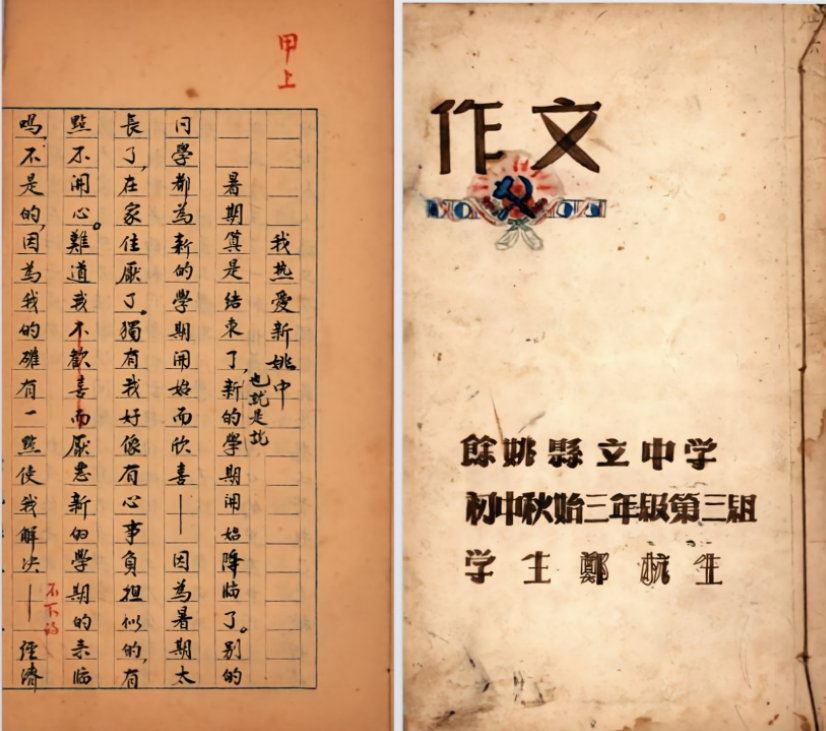 甲上
我热爱新姚中
暑期算是结束了,新的學期開始降临了。别的
也就是説
同學都為新的學期開始而欣喜——因為暑期太
長了,在家住厭了。獨有我好像有心事負担似的,有
點不開心。難道我不歡喜而厭惡新的學期的来临
嗎,不是的,因為我的確有一點使我解决——經濟
不下的
作文
餘姚縣立中学
初中秋始三年級第三組
学生鄭杭生